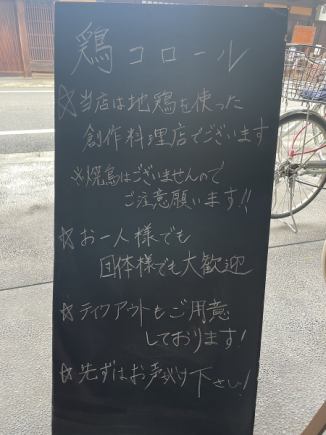 鶏コロール
☆当店は地鶏を使った
創作料理店でございます
※焼鳥はございませんので
ご注意願います!!
☆お一人様でも
団体様でも大歓迎
☆ティクアウトもご用意
しております!
☆先ずはお声がけ下さい!